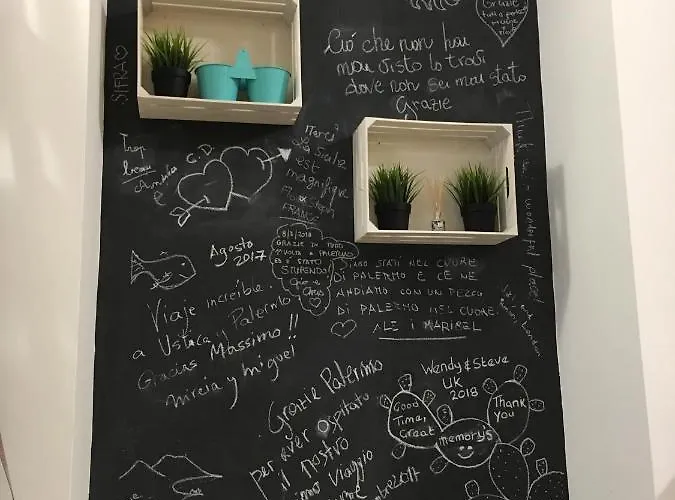 Grazie
Ciò che non hai
mai visto lo trovi
dove non sei mai stato
Grazie
SIFRA
Trop
beau
G.D.
Merci
La Sicile
est
magnifique
FRANCE
Agosto
2017
8/2/2018
GRAZIE DI TUTTO
1ª VOLTA A PALERMO
ED È STATO
STUPENDO
SIAMO STATI NEL CUORE
DI PALERMO E CE NE
ANDIAMO CON UN PEZZO
DI PALERMO NEL CUORE.
ALE i MARIBEL
Thank in wonderful place
London
Viaje increíble.
a Ustica y Palermo
Gracias Massimo!!
Mireia y Miguel
Grazie Palermo
per aver ospitato
il nostro
viaggio
Wendy & Steve
UK
2018
Good
Time,
Great
memory's
Thank
you